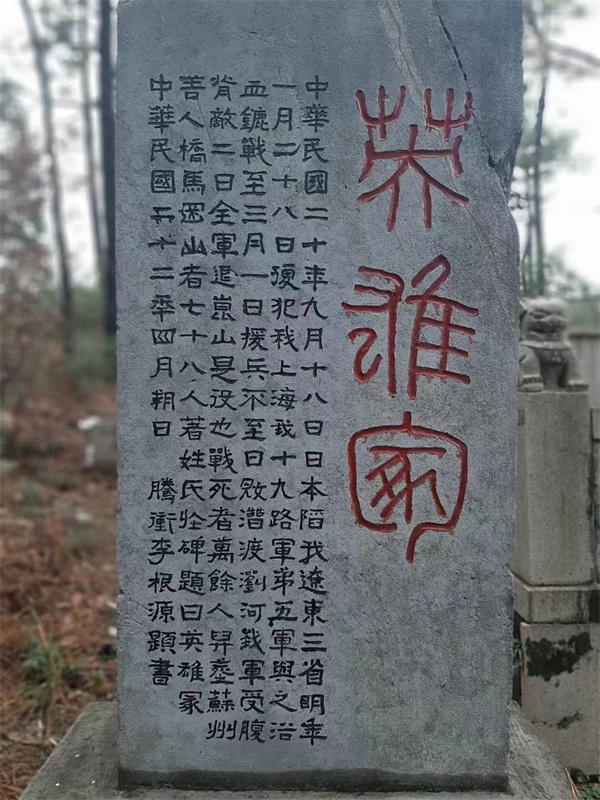 英雄冢
中華民國二十年九月十八日日本陷我遼東三省明年
一月二十八日復犯我上海我十九路軍弟五軍與之浴
血鏖戰至三月一日援兵不至日敗潛渡瀏河我軍受腹
背敵二日全軍退崑山是役也戰死者萬餘人舁葬蘇州
善人橋馬岡山者七十八人著姓氏於碑題曰英雄冢
中華民國二十二年四月朔日 騰衝李根源題書